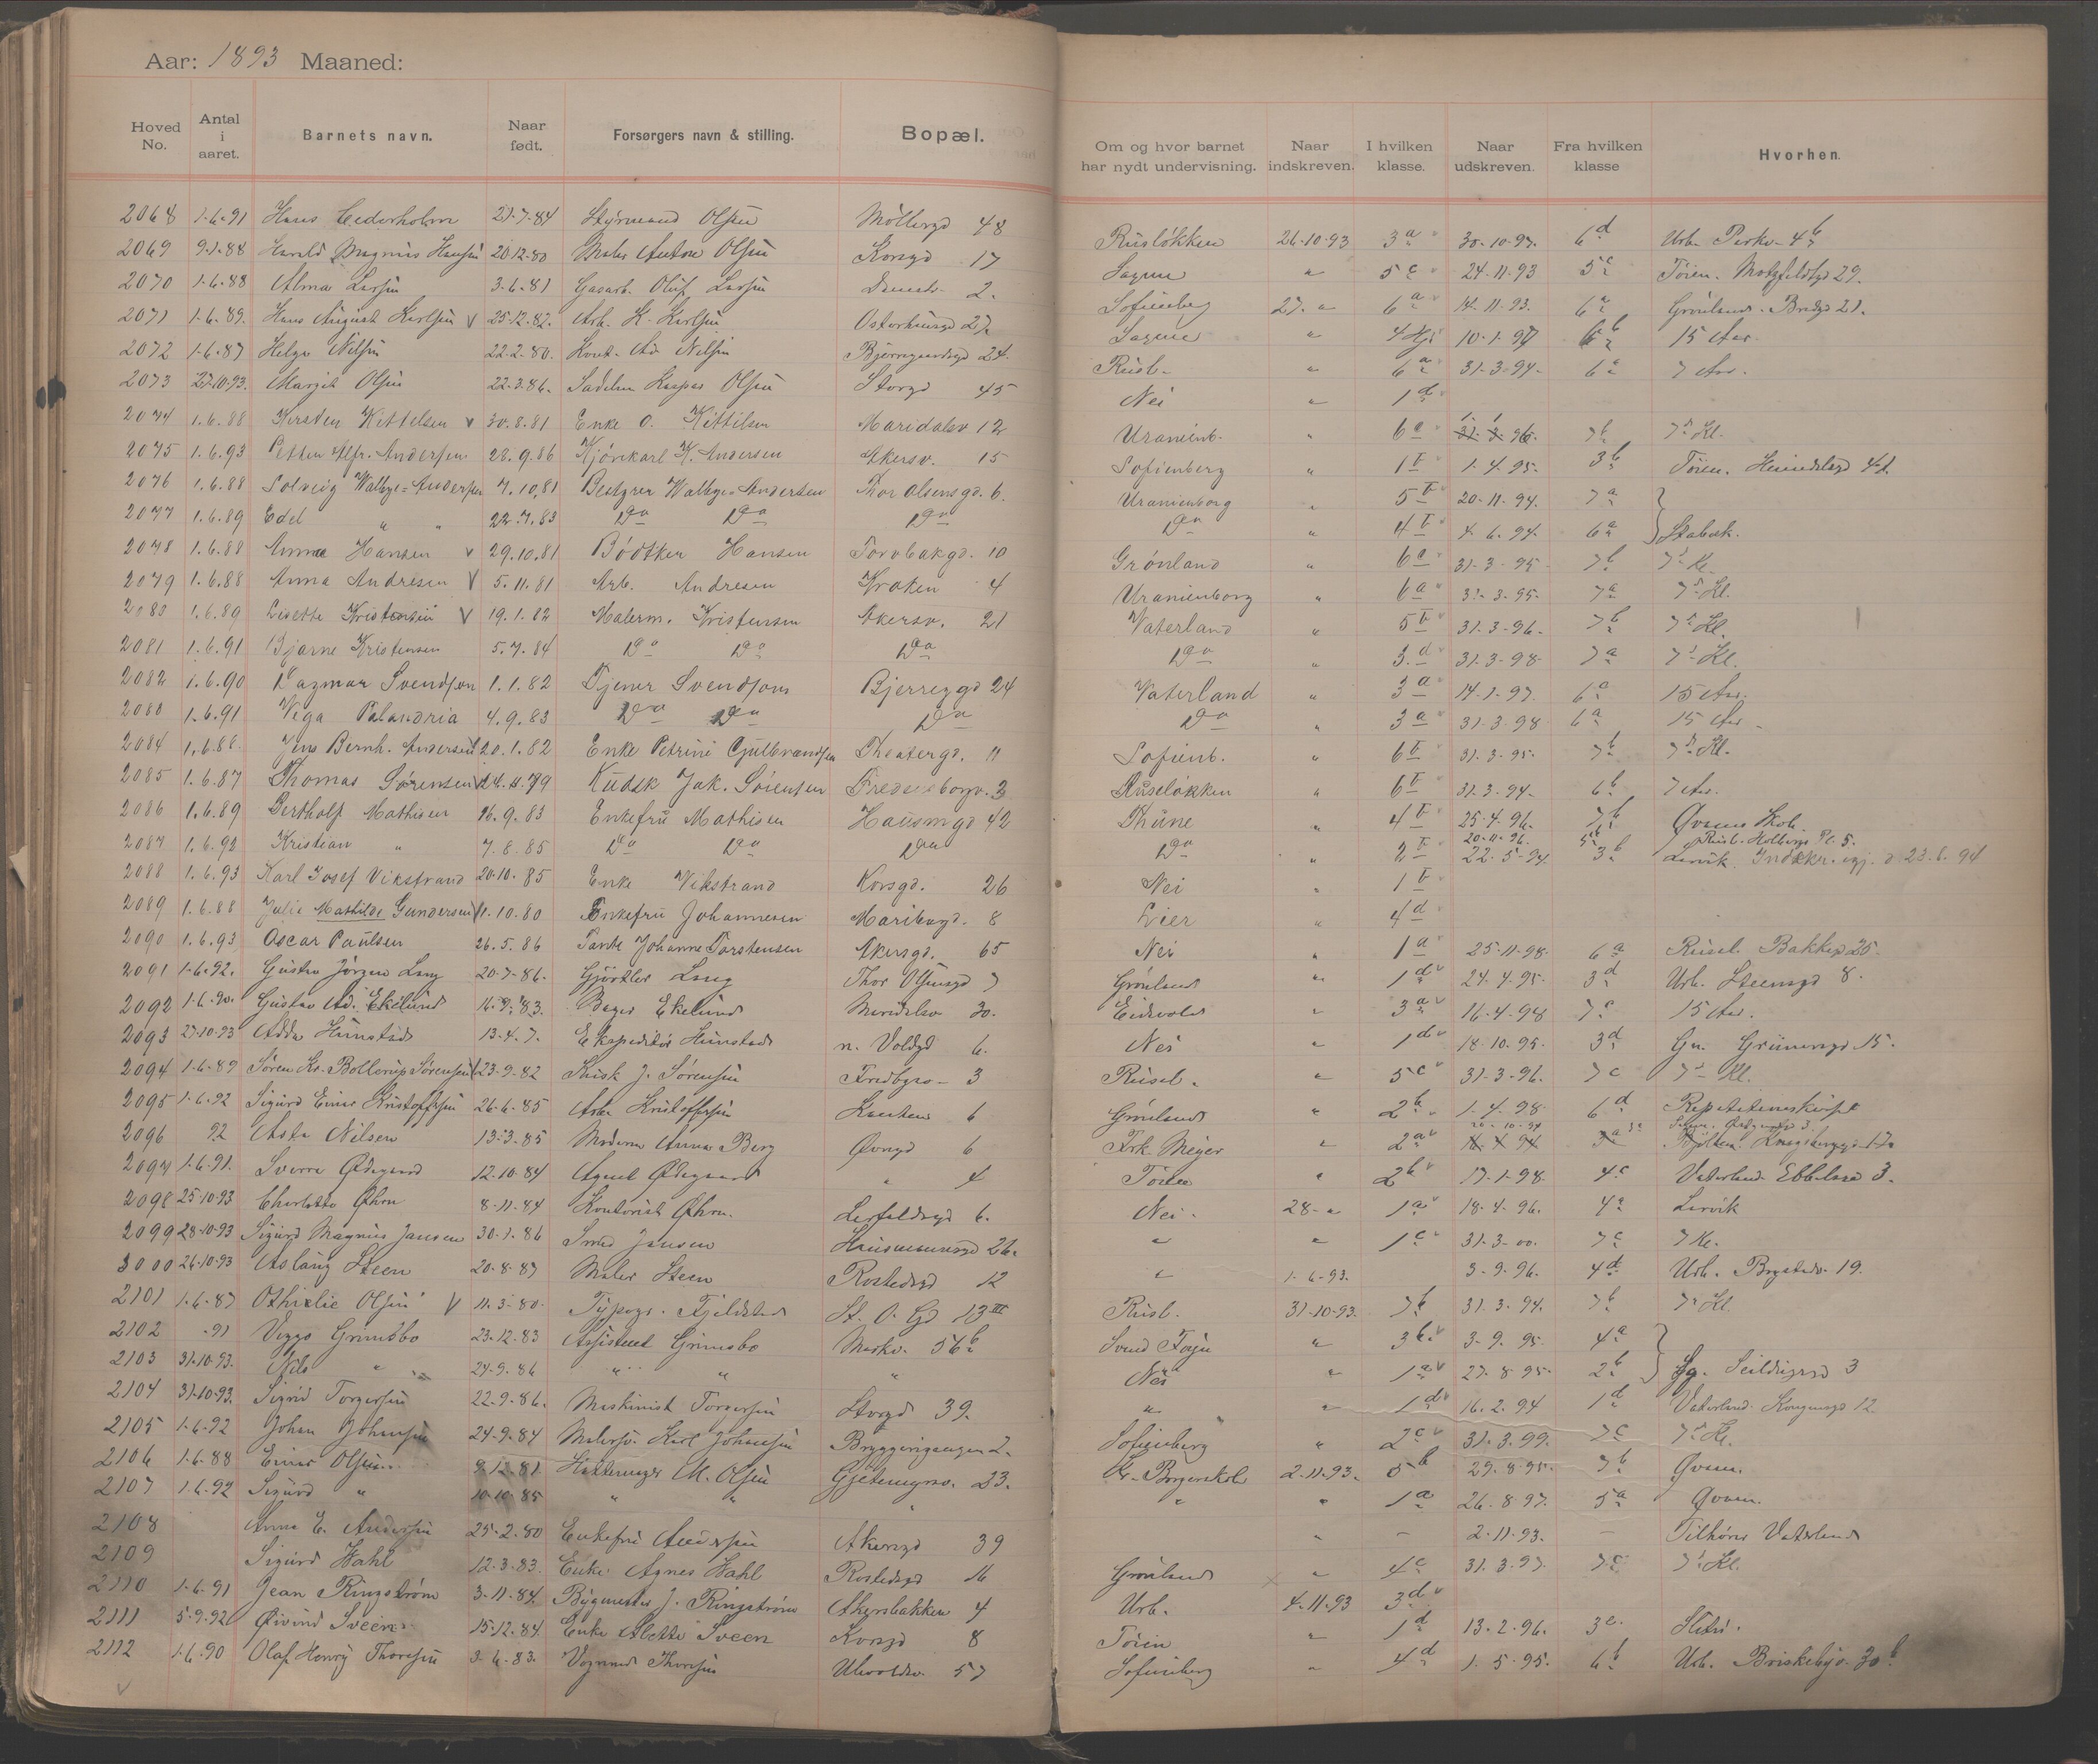 Aar: 1893 Maaned:
Hoved No. Antal i aaret. Barnets navn. Naar født. Forsørgers navn & stilling. Bopæl. Om og hvor barnet har nydt undervisning. Naar indskreven. I hvilken klasse. Naar udskreven. Fra hvilken klasse Hvorhen.
2068 1-6-91 Hans Cederholm 21-7-84 Styrmand Olsen Møllergd 48 Rusløkken 26-10-93 3a 30-10-97 6d Urb. Parkv. 4b
2069 9-1-88 Harald Magnus Hansen 20-12-80 Maler Anton Olsen Korsgd 17 Sagene " 5c 24-11-93 5c Tøien. Motzfeldtgd 29.
2070 1-6-88 Alma Larsen 3-6-81 Gasarb. Oluf Larsen 2. Sofienberg 27- " 6a 14-11-93. 6a Grønland. Bredgd 21.
2071 1-6-89. Hans August Karlsen V 25-12-82. Arb. K. Karlsen Osterhausgd 27. Sagene " 10-1-97 6b 15 Aar.
2072 1-6-87 Helga Nilsen 22-2-80. Kont. Ad. Nilsen Bjerregaardsgd 24. Rusl. " 6a 31-3-94- 6a 7 Aar.
2073 27-10-93. Margit Olsen 22-3-86. Sadelm Kaspar Olsen Storgd 45 Nei " 1d
2074 1.6.88 Kirsten Kittelsen v 30.8.81 Enke O. Kittilsen Maridalsv 12 Uranienb. " 6a 7b 7de Kl.
2075 1.6.93 Petter Alfr. Andersen 28.9.86 Kjørekarl K. Andersen Akersv. 15 Sofienberg " 1b 1.4.95. 3b Tøien. 41.
2076 1.6.88 Solveig Walbye-Andersen 7.10.81 Bestyrer Walbye-Andersen Thor Olsensgd. 6. Uranienborg " 5b 20-11-94. 7a
2077 1.6.89 Edel " " 22.7.83 Do Do Do Do " 4b 4.6.94. 6a Stabæk.
2078 1.6.88 Anna Hansen v 29.10.81 Bødtker Hansen Torvbakgd. 10 Grønland " 6a 31-3-95- 7b 7de Kl.
2079 1.6.88 Anna Andresen V 5.11.81 Arb. Andresen Kroken 4 Uranienborg " 6a 31-3-95. 7a 7de Kl.
2080 1.6.89 Lisette Kristensen V 19.1.82 Malerm. Kristensen Akersv. 21 Vaterland " 5b 31.3-96. 7b 7de Kl.
2081 1.6.91 Bjarne Kristensen 5.7.84 Do Do Do Do " 3.d 31.3-98- 7a 7de Kl.
2082 1.6.90 Dagmar Svendsen 1.1.82 Tjener Svendsen Bjerregd 24 Vaterland " 3a 14-1-97. 6a 15 Aar.
2083 1.6.91 Viga Palandria 4.9.83 Do Do Do Do " 3a 31.3-98 6a 15 Aar.
2084 1.6.88. Jens Bernh. Andersen 20.1.82 Enke Petrine Gulbrandsen Theatergd. 11 Sofienb. " 6b 31.3-95. 7b 7de Kl.
2085 1.6.87 Thomas Sørensen Kudsk Jak. Sørensen Fredensborgv. 3 Ruseløkken " 6b 31-3-94. 6b 7 Aar.
2086 1.6.89 Berthold Mathisen 16.9.83 Enkefru Mathisen Hausmgd 42 Thune " 4b 25-4-96. 7b Qvams Skole.
2087 1.6.92 Kristian " 7.8.85 Do Do Do Do " 2b 20-11-96. 22.5-94 5b 3b Rusl. Holbergs Pl. 5. Larvik. Indskr. igj. d 23.6.94
2088 1.6.93 Karl Josef Vikstrand 20-10.85 Enke Vikstrand Korsgd. 26 Nei " 1b
2089 1.6.88 Julie Mathilde Gundersen 11-10.80 Enkefru Johannesen Mariboegd. 8 Lier " 4d
2090 1.6.93 Oscar Paulsen 26.5.86 Tante Johanne Torstensen Akersgd. 65 Nei " 1a 25-11-98. 6a Rusel. Bakkegd 25
2091 1-6-92. Gustav Jørgen Lang 20-7-86. Gjørtler Lang Thor Olsensgd 7 Grønland " 1d 24.4-95- 3d Urb. Steensgd 8.
2092 1-6-90. Gustav Ad. Ekelund 16-9-83. Bager Ekelund Maridalsv 30. Eidsvold " 3a 16-4-98 7c 15 Aar.
2093 27-10-93 Hunstad 13-4-7. Ekspeditør Hunstad n. Voldgd 6. Nei " 1d 18-10.95. 3d Gr. Grünersgd 15.
2094 1-6-89 Søren Kr. Bollerup Sørensen 23-9-82 Kusk J. Sørensen Fredbgsv- 3 Rusel. " 5c 31-3-96. 7c 7de Kl.
2095 1-6-92 Sigurd Einar Kristoffersen 26-6-85 Arb. Kristoffersen 6 Grønland " 2b 1.4.98- 6d
2096 92 Asta Nilsen 13-3-85 Madam Anna Berg 6 Frk. Meyer " 2a
2097 1-6-91. Sverre Ødegaard 12-10-84 Agent Ødegaard " 4 Tøien " 2b 17-1-98. 4c Vaterland 3.
2098 25-10-93 Charlotte Øhrn 8-11-84 Kontorist Øhrn. 6. Nei. 28- " 1a 18-4-96. 4a Larvik
2099 28-10-93 Sigurd Magnus Jansen 30-1-86 Smed Jansen Hausmannsgd 26. " " 1c 31-3-00. 7c 7 Kl.
3000 26-10-93 Aslaug Steen 20-8-87 Maler Steen Rostedsgd 12 " 1-6-93. 3-9-96. 4d Urb. 19.
2101 1-6-87 Othielie Olsen V 11-3-80- Typogr. Fjeldstad St. O. Gd 13 III Rusl. 31-10-93. 7b 31.3-94. 7b 7de Kl.
2102 -91 Viggo Grimsbo 23-12-83 Assistent Grimsbo Markv. 56b " 3b 3-9-95. 4a
2103 31-10-93. Nils " 24-9-86 " " " Nei " 1a 27-8-95- 2b 3
2104 31-10-93. Sigrid Torgersen 22-9-86. Maskinist Torgersen Storgd 39. " " 1d 16-2-94 1d Vaterland. Kongensgd 12
2105 1-6-92 Johan Johansen 24-9-84 Malersv. Karl Johansen Bryggerigangen 2. Sofienberg " 2c 31.3.99. 7c 7de Kl.
2106 1-6-88 Einar Olsen 9-12-81 M. Olsen Gjetemyrsv. 23. Kr. Borgerskole 2-11-93. 5b 29-8-95- 7b Qvam.
2107 1-6-92 Sigurd " 10-10-85 " " " " " 1a 26-8-97. 5a Qvam.
2108 Anna E. Andersen 25-2-80 Enkefru Andersen Akersgd 39 " - 2-11-93. - Tilhører Vaterland
2109 Sigurd Wahl 12-3-83. Enke Agnes Wahl Rostedsgd 16 Grønland " 4c 31.3-97. 7c 7de Kl.
2110 1-6-91 Jean Ringstrøm 3-11-84. Bygmester J. Ringstrøm Akersbakken 4 Urb. 4-11-93 3d
2111 5-9.92 Øivind Sveen 15-12-84 Enke Alette Sveen Korsgd 8 Tøien " 1d 13-2-96. 3c.
2112 1-6-90 Olaf Henry Thoresen 3-6-83. Vognmand Thoresen Ulevoldsv. 57 Sofienberg " 4d 1-5-95. 6b Urb. Briskebyv. 30b.